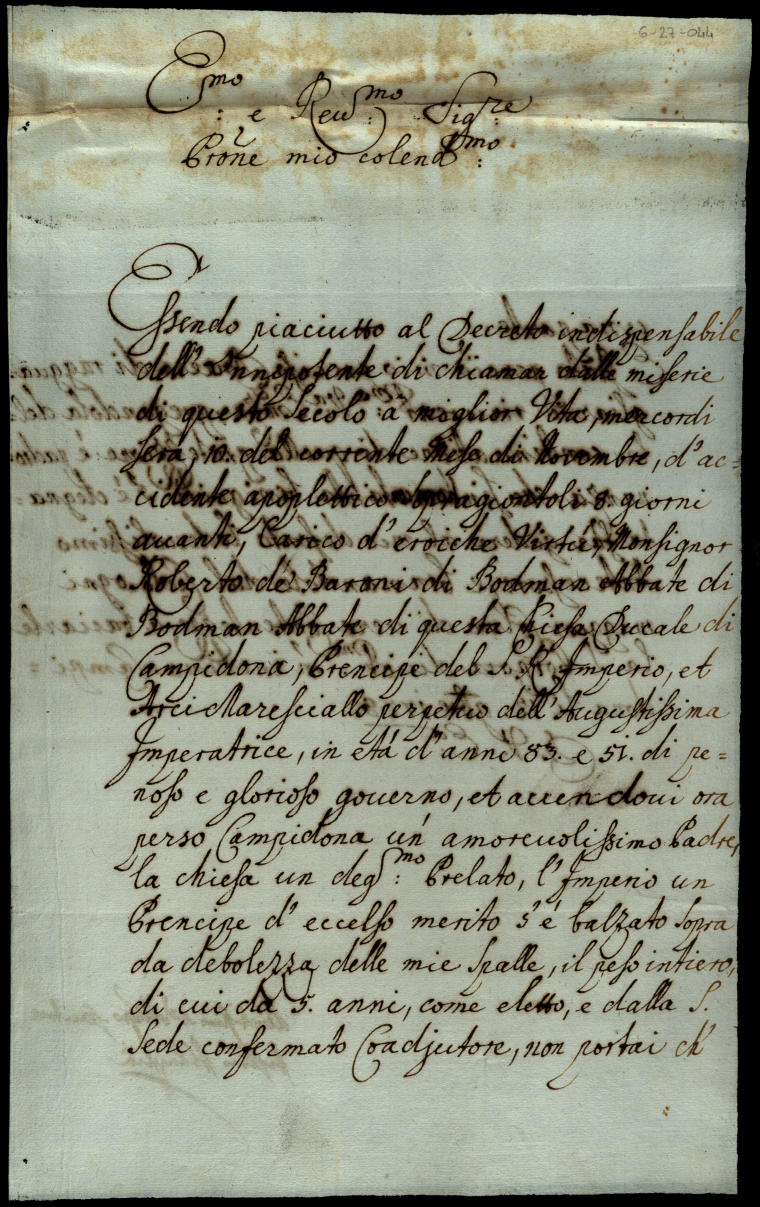 6-27-044
E.mo e Reu.mo Sig.re
Prone mio colend.mo
Essendo piaciutto al Decreto indispensabile
dell'Onnipotente di chiamar dalle miserie
di questo secolo à miglior Vita, mercordi
sera, 10. del corrente Mese di Novembre, d'ac=
cidente apoplettico sopragiontoli 8. giorni
auanti, Carico d'eroiche Virtù, Monsignor
Roberto de' Baroni di Bodman Abbate di
Bodman Abbate di questa Chiesa Ducale di
Campidona, Prencipe del S. R. Imperio, et
Arci Maresciallo perpetuo dell'Augustissima
Imperatrice, in età d'anni 83. e 51. di pe=
noso e glorioso gouerno, et auendoui ora
perso Campidona un' amoreuolissimo Padre,
la chiesa un deg.mo Prelato, l'Imperio un
Prencipe d'eccelso merito s'è balzato sopra
da debolezza delle mie spalle, il peso intiero,
di cui da 5. anni, come eletto, e dalla S.
Sede confermato Coadjutore, non portai ch'